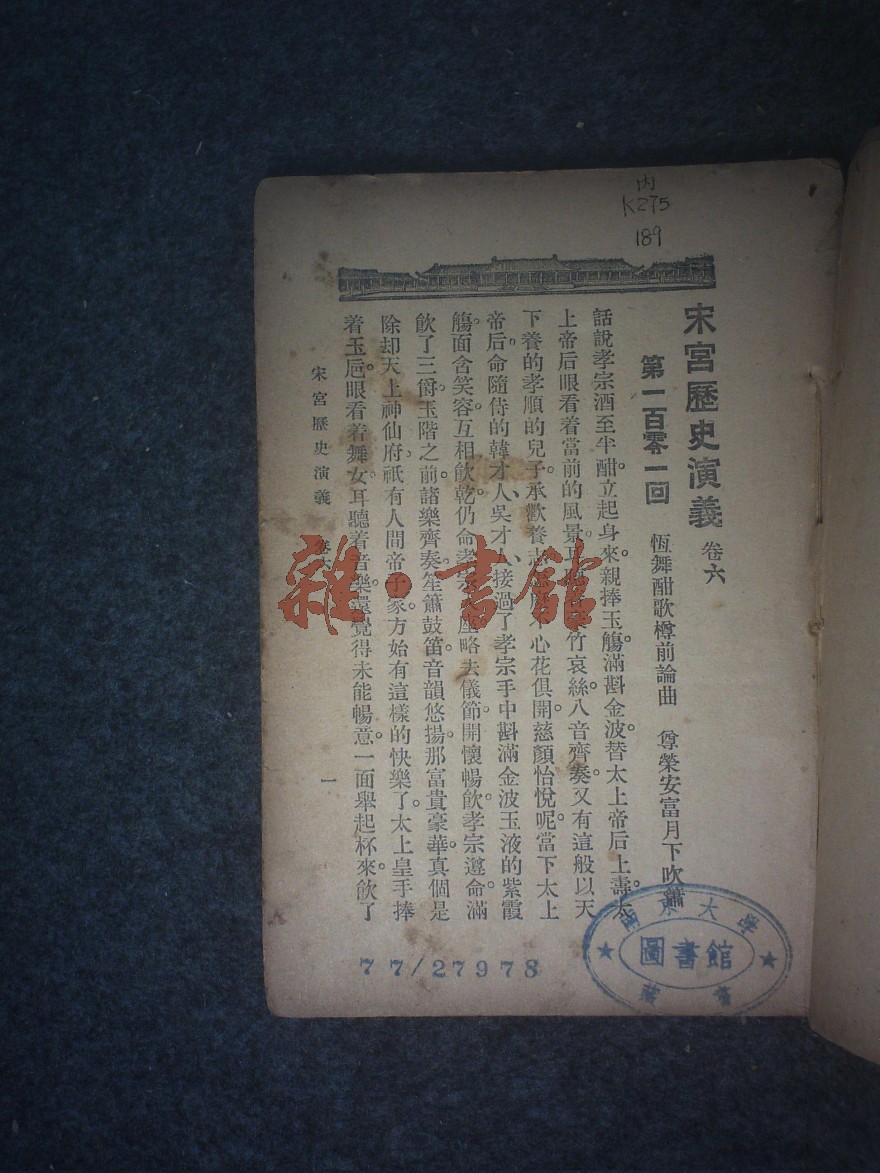 内
K275
189
宋宮歷史演義 卷六
第一百零一回 恆舞酣歌樽前論曲 尊榮安富月下吹簫
話說孝宗酒至半酣。立起身來。親捧玉觴滿斟金波。替太上帝后上壽。太
上帝后眼看着當前的風景。竹哀絲。八音齊奏。又有這般以天
下養的孝順的兒子。承歡養志。心花俱開。慈顏怡悅呢。當下太上
帝后。命隨侍的韓才人、吳才人、接過了孝宗手中斟滿金波玉液的紫霞
觴。面含笑容。互相飲乾。仍命孝宗座。略去儀節。開懷暢飲。孝宗遵命。滿
飲了三爵。玉階之前。諸樂齊奏。笙簫鼓笛。音韻悠揚。那富貴豪華。真個是
除却天上神仙府。祇有人間帝子家。方始有這樣的快樂了。太上皇手捧
着玉卮。眼看着舞女。耳聽着音樂。還覺得未能暢意。一面舉起杯來。飲了
宋宮歷史演義 卷六 一
雜·書館
南京大學
圖書館
藏書
77/27978